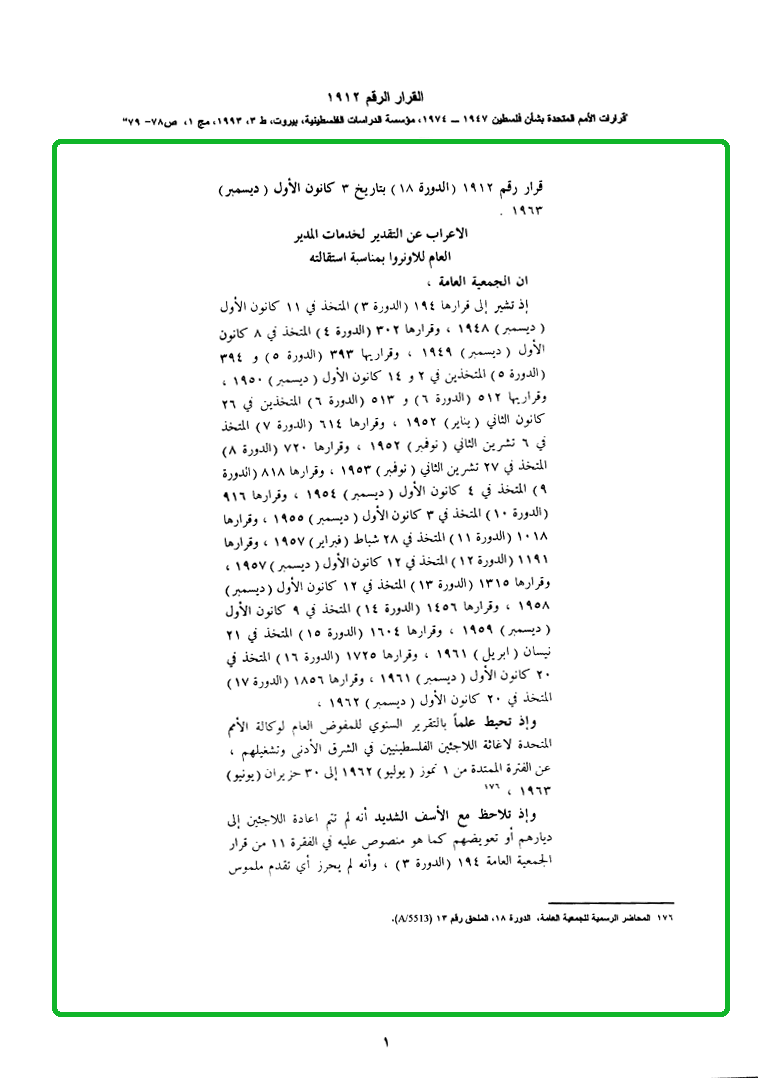 القرار الرقم ١٩١٢
"قرارات الأمم المتحدة بشأن فلسطين ١٩٤٧ ــ ١٩٧٤، مؤسسة الدراسات الفلسطينية، بيروت، ط ٣، ١٩٩٣، مج ١، ص٧٨- ٧٩"
قرار رقم ١٩١٢ (الدورة ١٨) بتاريخ ٣ كانون الأول (ديسمبر)
١٩٦٣ .
الاعراب عن التقدير لخدمات المدير
العام للاونروا بمناسبة استقالته
ان الجمعية العامة ،
إذ تشير إلى قرارها ١٩٤ (الدورة ٣) المتخذ في ١١ كانون الأول
(ديسمبر) ١٩٤٨ ، وقرارها ٣٠٢ (الدورة ٤) المتخذ في ٨ كانون
الأول (ديسمبر) ١٩٤٩ ، وقراريها ٣٩٣ (الدورة ٥) و ٣٩٤
(الدورة ٥) المتخذين في ٢ و ١٤ كانون الأول (ديسمبر) ١٩٥٠ ،
وقراريها ٥١٢ (الدورة ٦) و ٥١٣ (الدورة ٦) المتخذين في ٢٦
كانون الثاني (يناير) ١٩٥٢ ، وقرارها ٦١٤ (الدورة ٧) المتخذ
في ٦ تشرين الثاني (نوفمبر) ١٩٥٢ ، وقرارها ٧٢٠ (الدورة ٨)
المتخذ في ٢٧ تشرين الثاني (نوفمبر) ١٩٥٣ ، وقرارها ٨١٨ (الدورة
٩) المتخذ في ٤ كانون الأول (ديسمبر) ١٩٥٤ ، وقرارها ٩١٦
(الدورة ١٠) المتخذ في ٣ كانون الأول (ديسمبر) ١٩٥٥ ، وقرارها
١٠١٨ (الدورة ١١) المتخذ في ٢٨ شباط (فبراير) ١٩٥٧ ، وقرارها
١١٩١ (الدورة ١٢) المتخذ في ١٢ كانون الأول (ديسمبر) ١٩٥٧ ،
وقرارها ١٣١٥ (الدورة ١٣) المتخذ في ١٢ كانون الأول (ديسمبر)
١٩٥٨ ، وقرارها ١٤٥٦ (الدورة ١٤) المتخذ في ٩ كانون الأول
(ديسمبر) ١٩٥٩ ، وقرارها ١٦٠٤ (الدورة ١٥) المتخذ في ٢١
نيسان (ابريل) ١٩٦١ ، وقرارها ١٧٢٥ (الدورة ١٦) المتخذ في
٢٠ كانون الأول (ديسمبر) ١٩٦١ ، وقرارها ١٨٥٦ (الدورة ١٧)
المتخذ في ٢٠ كانون الأول (ديسمبر) ١٩٦٢ ،
وإذ تحيط علماً بالتقرير السنوي للمفوض العام لوكالة الأمم
المتحدة لاغاثة اللاجئين الفلسطينيين في الشرق الأدنى وتشغيلهم ،
عن الفترة الممتدة من ١ تموز (يوليو) ١٩٦٢ إلى ٣٠ حزيران (يونيو)
١٩٦٣ ، ١٧٦
وإذ تلاحظ مع الأسف الشديد أنه لم تتم اعادة اللاجئين إلى
ديارهم أو تعويضهم كما هو منصوص عليه في الفقرة ١١ من قرار
الجمعية العامة ١٩٤ (الدورة ٣) ، وأنه لم يحرز أي تقدم ملموس
١٧٦ المحاضر الرسمية للجمعية العامة، الدورة ١٨، الملحق رقم ١٣ (A/5513).
١